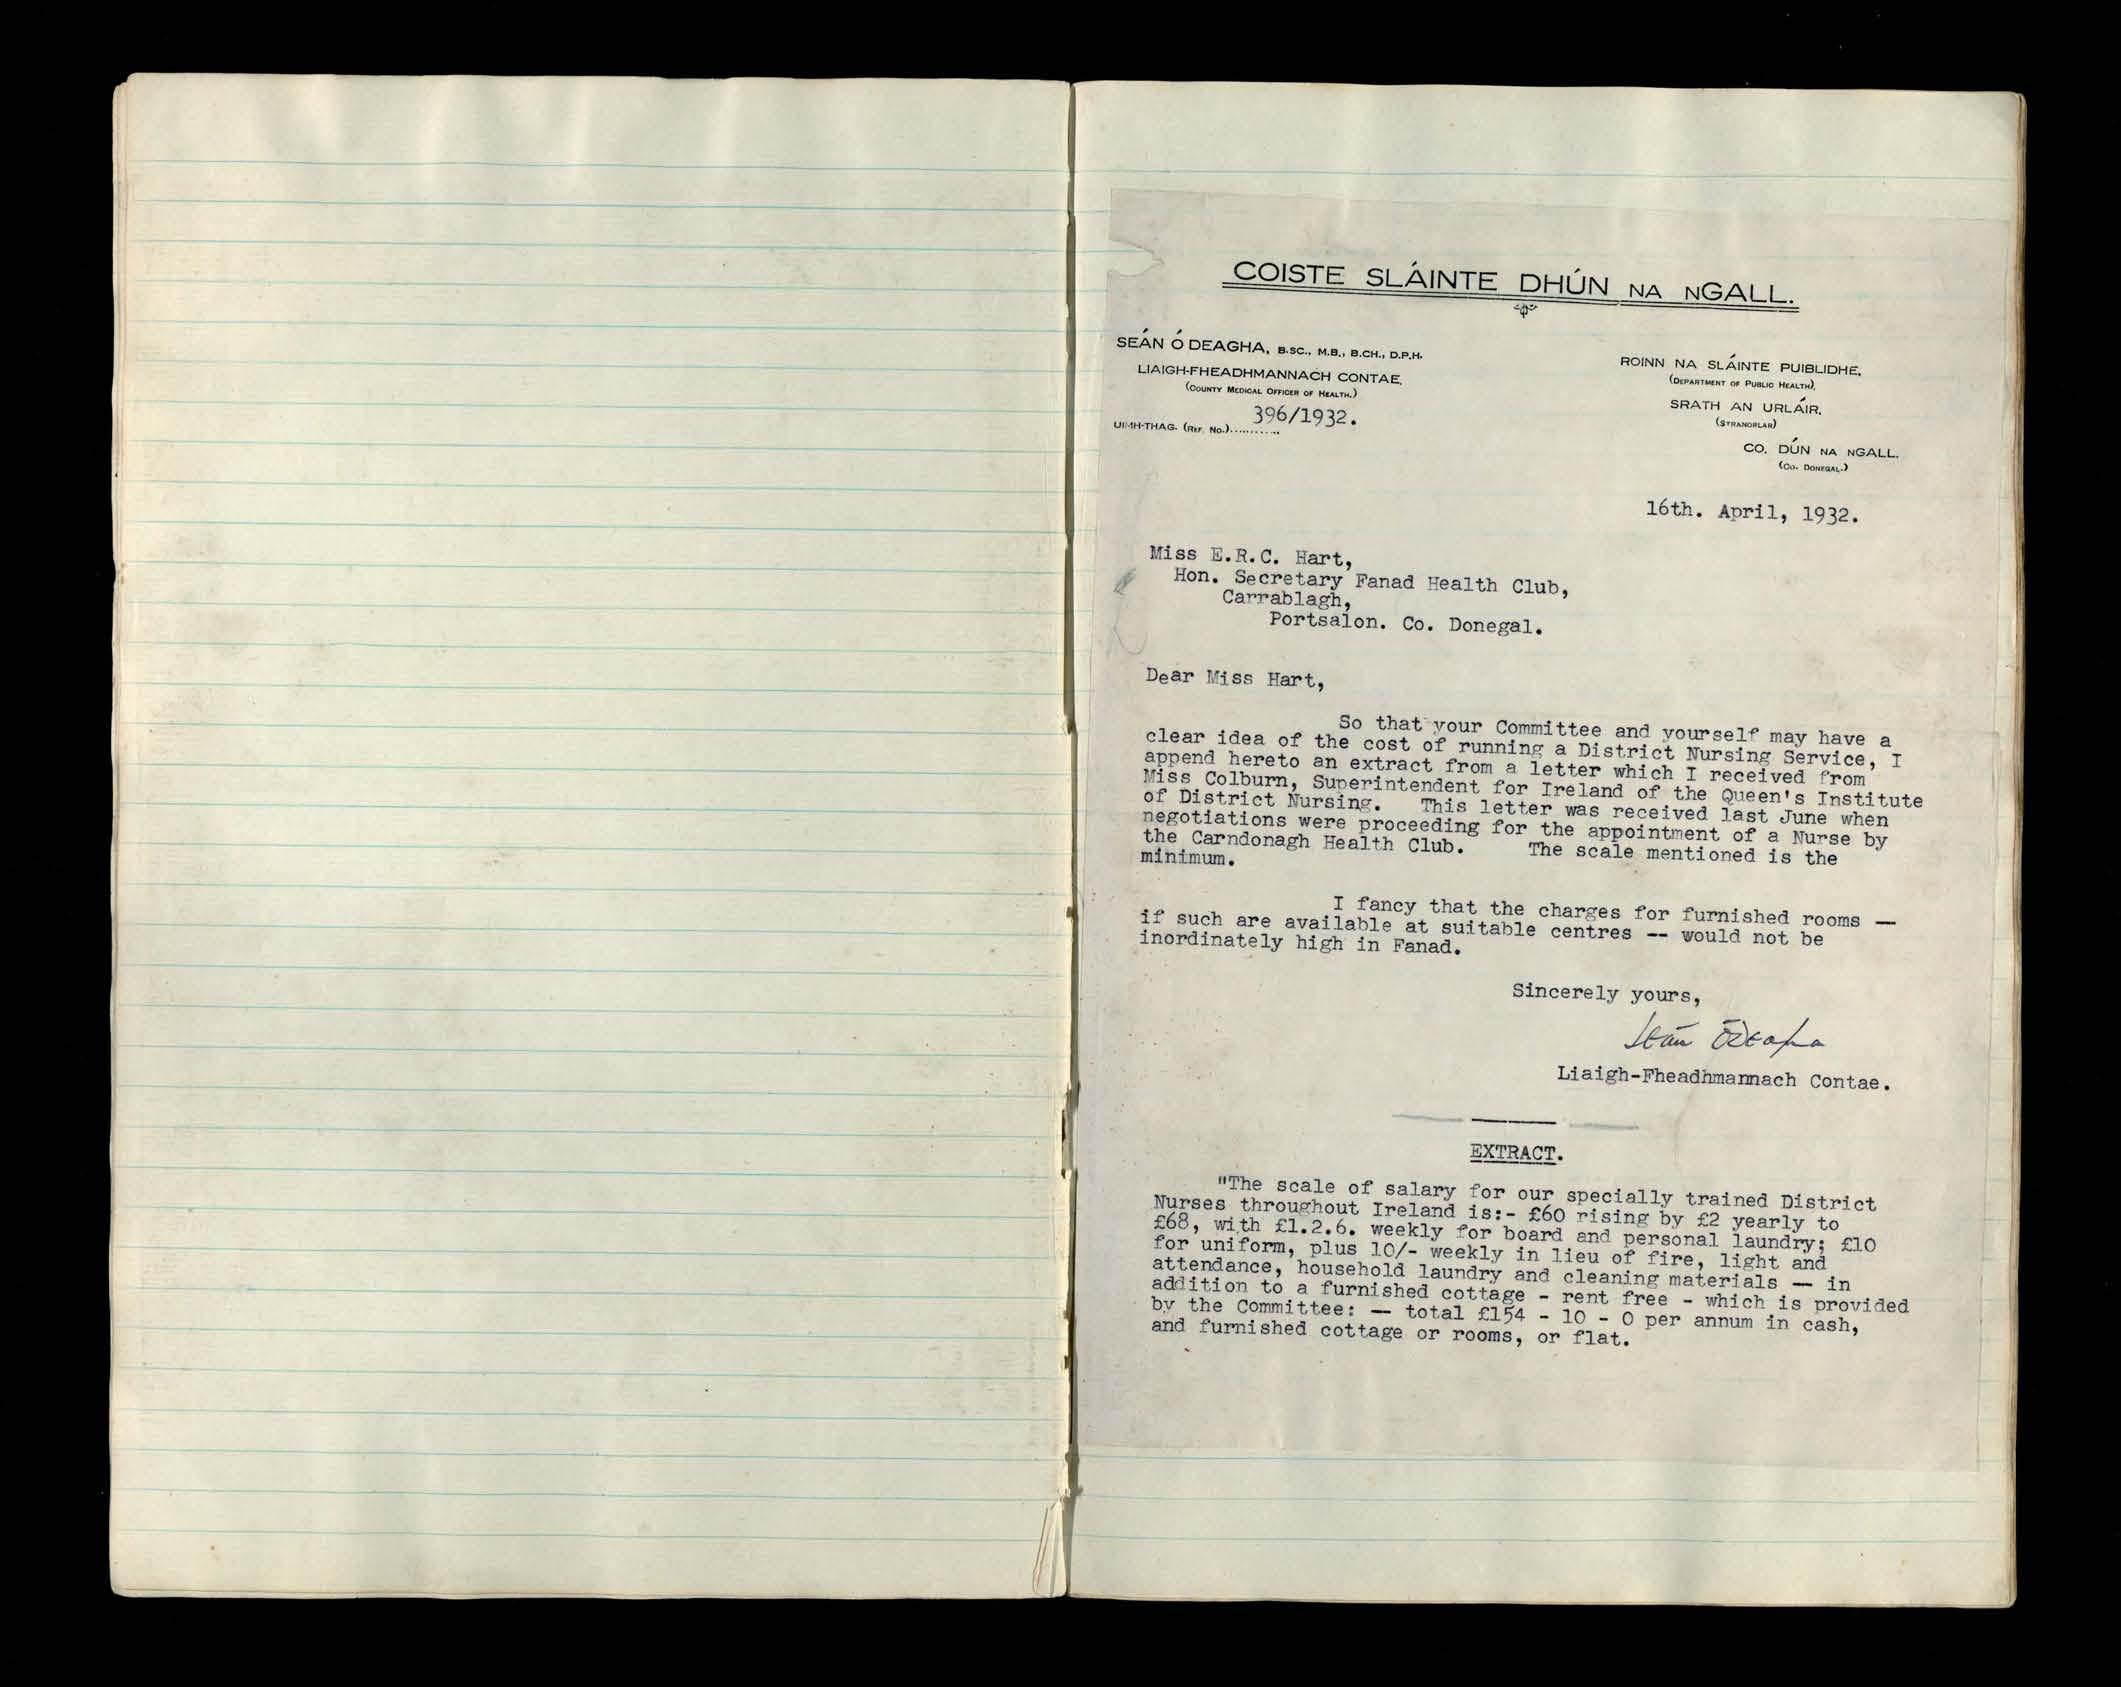 COISTE SLÁINTE DHÚN NA NGALL.
SEÁN Ó DEAGHA, B.SC., M.B., B.CH., D.P.H.
LIAIGH-FHEADHMANNACH CONTAE.
(COUNTY MEDICAL OFFICER OF HEALTH.)
396/1932.
UIMH-THAG. (REF. NO.)...........
ROINN NA SLÁINTE PUIBLIDHE.
(DEPARTMENT OF PUBLIC HEALTH).
SRATH AN URLÁIR.
(STRANORLAR)
CO. DÚN NA NGALL.
(CO. DONEGAL.)
16th. April, 1932.
Miss E.R.C. Hart,
Hon. Secretary Fanad Health Club,
Carrablagh,
Portsalon. Co. Donegal.
Dear Miss Hart,
So that your Committee and yourself may have a
clear idea of the cost of running a District Nursing Service, I
append hereto an extract from a letter which I received from
Miss Colburn, Superintendent for Ireland of the Queen's Institute
of District Nursing. This letter was received last June when
negotiations were proceeding for the appointment of a Nurse by
the Carndonagh Health Club. The scale mentioned is the
minimum.
I fancy that the charges for furnished rooms —
if such are available at suitable centres -- would not be
inordinately high in Fanad.
Sincerely yours,
Seán Ó Deagha
Liaigh-Fheadhmannach Contae.
EXTRACT.
"The scale of salary for our specially trained District
Nurses throughout Ireland is:- £60 rising by £2 yearly to
£68, with £1.2.6. weekly for board and personal laundry; £10
for uniform, plus 10/- weekly in lieu of fire, light and
attendance, household laundry and cleaning materials — in
addition to a furnished cottage - rent free - which is provided
by the Committee: — total £154 - 10 - 0 per annum in cash,
and furnished cottage or rooms, or flat.